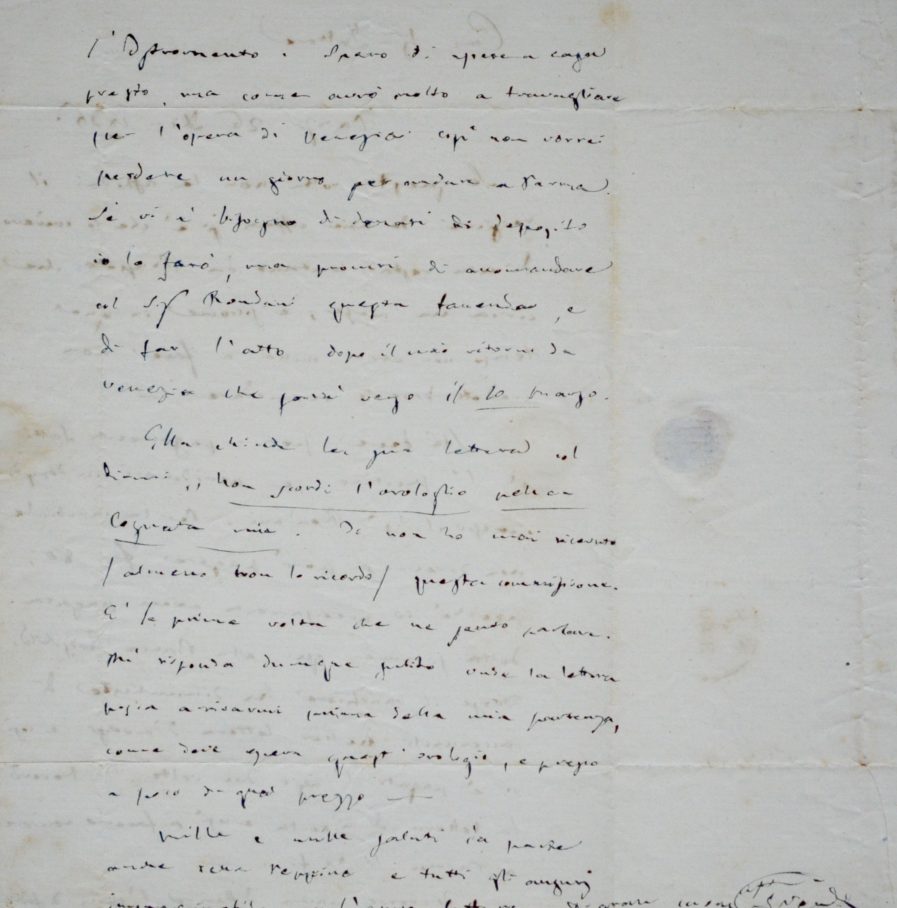 l'Istromento. Spero di essere a casa
presto, ma come avrò molto a travagliare
per l'opera di Venezia così non vorrei
perdere un giorno per andare a Parma.
Se vi è bisogno di denari di deposito
io lo farò, ma procuri di accomandare
al Sig. Rondani questa faccenda, e
di far l'atto dopo il mio ritorno da
Venezia che sarà verso il 20 Marzo.
Ella chiude la sua lettera col
dirmi,, non scordi l'orologio per la
Cognata mia. Io non ho mai ricevuto
/almeno non lo ricordo/ questa commissione.
E' la prima volta che ne sento parlare.
Mi risponda dunque subito onde la lettera
possa arrivarmi prima della mia partenza,
come deve essere quest'orologio, e presso
a poco di qual prezzo —
Mille e mille saluti da parte
anche della Peppina e tutti gli augurj